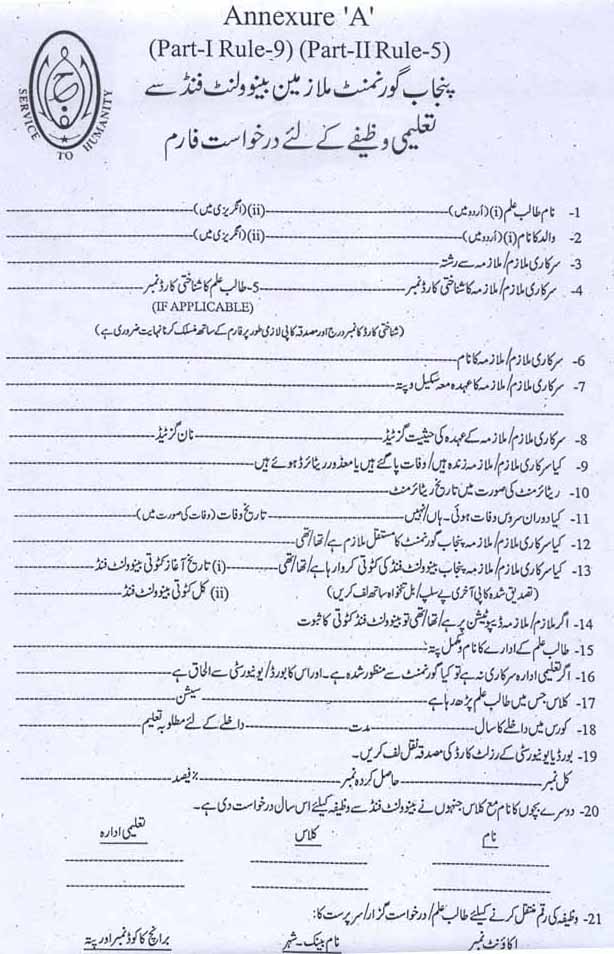 Annexure 'A'
(Part-I Rule-9) (Part-II Rule-5)
پنجاب گورنمنٹ ملازمین بینوولنٹ فنڈ سے
تعلیمی وظیفے کے لئے درخواست فارم
SERVICE TO HUMANITY
1- نام طالب علم (i) (اُردو میں)------(ii) (انگریزی میں)------
2- والد کا نام (i) (اُردو میں)------(ii) (انگریزی میں)------
3- سرکاری ملازم/ملازمہ سے رشتہ------
4- سرکاری ملازم/ملازمہ کا شناختی کارڈ نمبر------5- طالب علم کا شناختی کارڈ نمبر------
(IF APPLICABLE)
(شناختی کارڈ کا نمبر درج اور مصدقہ کاپی لازمی طور پر فارم کے ساتھ منسلک کرنا نہایت ضروری ہے)
6- سرکاری ملازم/ملازمہ کا نام------
7- سرکاری ملازم/ملازمہ کا عہدہ معہ سکیل و پتہ------
8- سرکاری ملازم/ملازمہ کے عہدہ کی حیثیت گزٹیڈ------نان گزٹیڈ------
9- کیا سرکاری ملازم/ملازمہ زندہ ہیں/وفات پا گئے ہیں یا معذور ریٹائرڈ ہوئے ہیں------
10- ریٹائرمنٹ کی صورت میں تاریخ ریٹائرمنٹ------
11- کیا دوران سروس وفات ہوئی۔ ہاں/نہیں------تاریخ وفات (وفات کی صورت میں)------
12- کیا سرکاری ملازم/ملازمہ پنجاب گورنمنٹ کا مستقل ملازم ہے/تھا/تھی------
13- کیا سرکاری ملازم/ملازمہ پنجاب بینوولنٹ فنڈ کی کٹوتی کروا رہا ہے/تھا/تھی------(i) تاریخ آغاز کٹوتی بینوولنٹ فنڈ------
(تصدیق شدہ کاپی آخری پے سلپ/بل تنخواہ ساتھ لف کریں) (ii) کل کٹوتی بینوولنٹ فنڈ------
14- اگر ملازم/ملازمہ ڈیپوٹیشن پر ہے/تھا/تھی تو بینوولنٹ فنڈ کٹوتی کا ثبوت
15- طالب علم کے ادارے کا نام و مکمل پتہ------
16- اگر تعلیمی ادارہ سرکاری نہ ہے تو کیا گورنمنٹ سے منظور شدہ ہے۔ اور اس کا بورڈ/یونیورسٹی سے الحاق ہے------
17- کلاس جس میں طالب علم پڑھ رہا ہے------سیشن------
18- کورس میں داخلے کا سال------مدت------داخلے کے لئے مطلوبہ تعلیم------
19- بورڈ یا یونیورسٹی کے رزلٹ کارڈ کی مصدقہ نقل لف کریں۔
کل نمبر------حاصل کردہ نمبر------% فیصد------
20- دوسرے بچوں کا نام مع کلاس جنہوں نے بینوولنٹ فنڈ سے وظیفہ کیلئے اس سال درخواست دی ہے۔
نام کلاس تعلیمی ادارہ
21- وظیفہ کی رقم منتقل کرنے کیلئے طالب علم/درخواست گزار/سرپرست کا:
اکاؤنٹ نمبر نام بینک۔شہر برانچ کا کوڈ نمبر اور پتہ